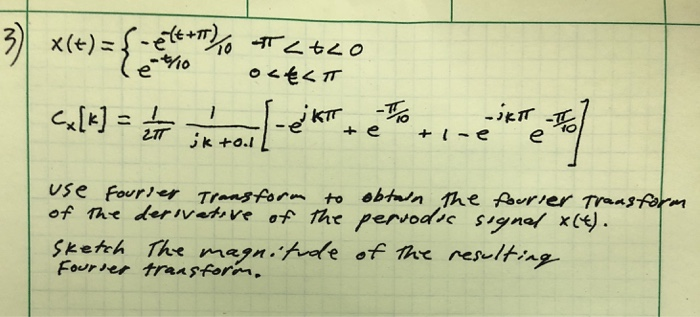 3) x(t) = { -e^-(t+π)/10 -π < t < 0
e^-t/10 0 < t < π
Cx[k] = 1/2π 1/(jk + 0.1) [ -e^jkπ + e^-π/10 + 1 - e^-jkπ e^-π/10 ]
Use Fourier Transform to obtain the fourier Transform
of the derivative of the periodic signal x(t).
Sketch The magnitude of the resulting
Fourier transform.